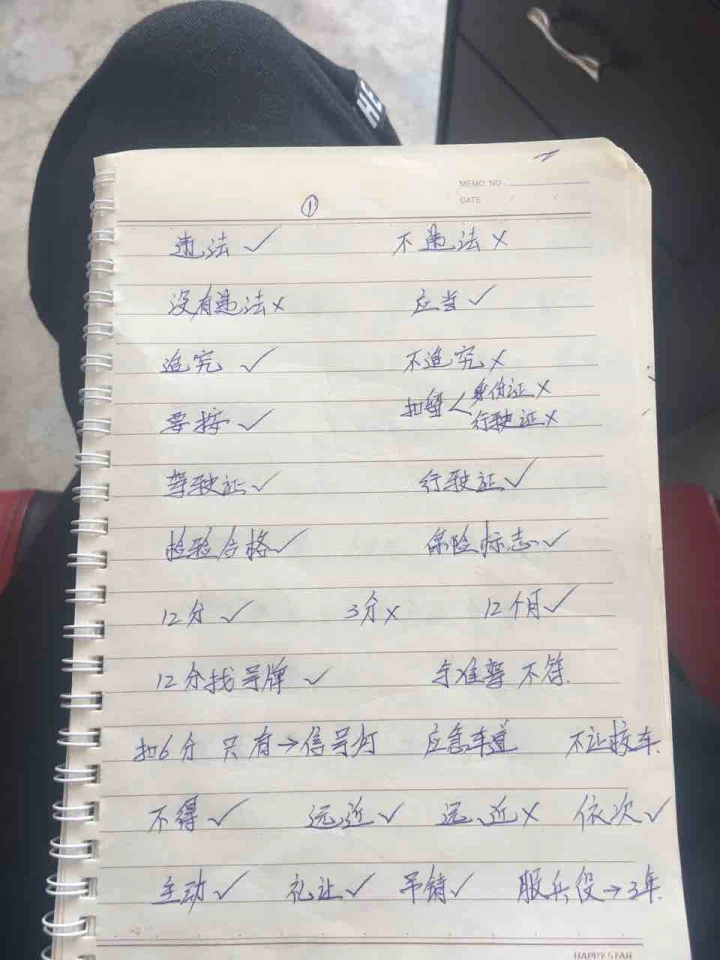 HE
MEMO NO.
DATE
①
违法✓ 不违法×
没有违法× 应当✓
追究✓ 不追究×
要按✓ 扣留<身份证× 行驶证×
驾驶证✓ 行驶证✓
检验合格✓ 保险标志✓
12分✓ 3分× 12个月✓
12分找号牌✓ 与准驾不符.
扣6分 只有→信号灯 应急车道 不让校车.
不得✓ 远近✓ 远、近× 依次✓
主动✓ 礼让✓ 吊销✓ 服兵役→3年.
HAPPYSTAR